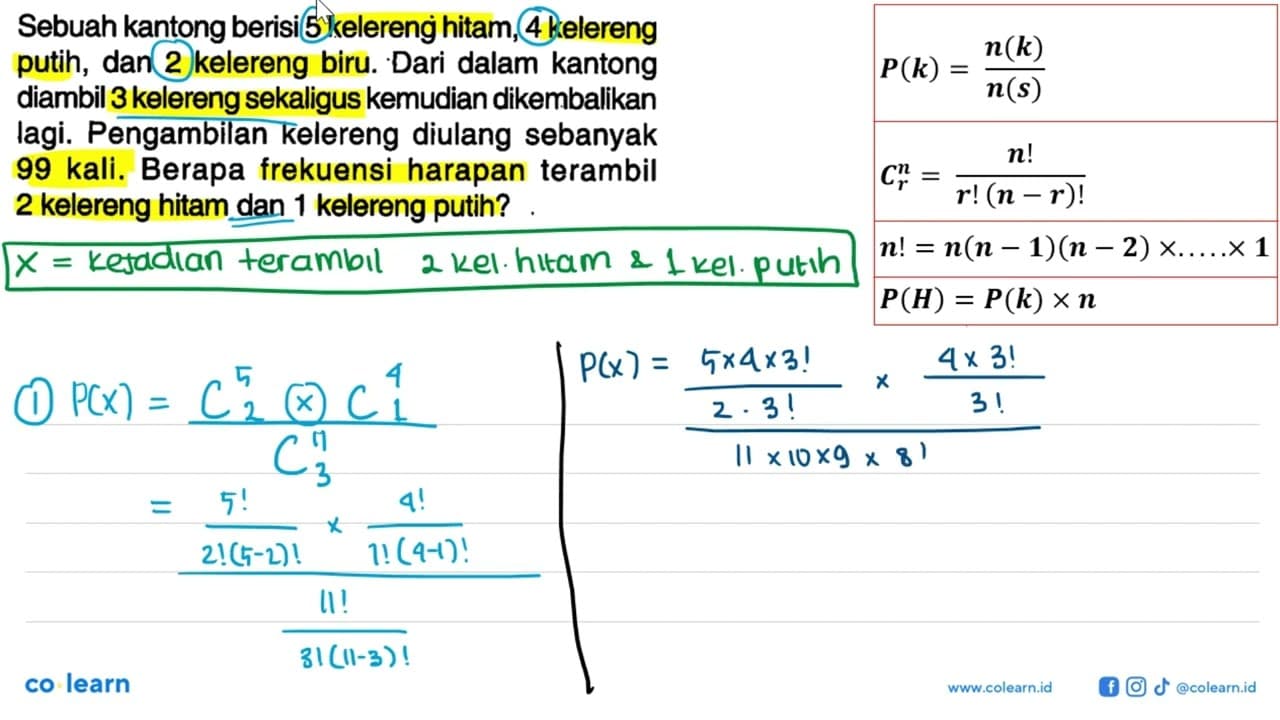 Sebuah kantong berisi 5 kelereng hitam, 4 kelereng
putih, dan 2 kelereng biru. Dari dalam kantong
diambil 3 kelereng sekaligus kemudian dikembalikan
lagi. Pengambilan kelereng diulang sebanyak
99 kali. Berapa frekuensi harapan terambil
2 kelereng hitam dan 1 kelereng putih?
X = kejadian terambil 2 kel. hitam & 1 kel. putih
P(k) = n(k) / n(s)
C^n_r = n! / r! (n − r)!
n! = n(n − 1)(n − 2) ×.....× 1
P(H) = P(k) × n
① P(x) = C^5_2 ⓧ C^4_1
C^11_3
= 5! / 2!(5-2)! × 4! / 1!(4-1)!
11!
3!(11-3)!
P(x) = 5×4×3! / 2 . 3! × 4 × 3! / 3!
11 ×10×9 × 8!
co learn
www.colearn.id
@colearn.id